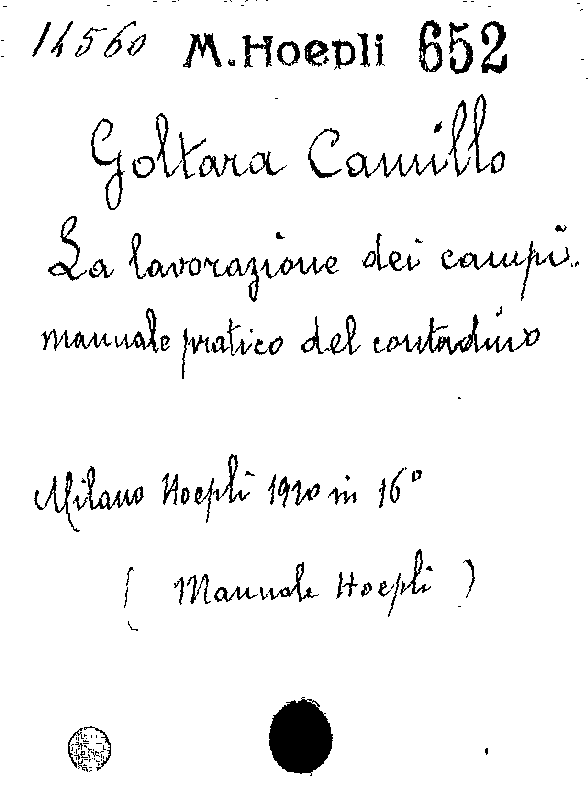 14560 M. Hoepli 652
Goltara Camillo
La lavorazione dei campi.
manuale pratico del contadino
Milano Hoepli 1920 in 16°
( Manuale Hoepli )